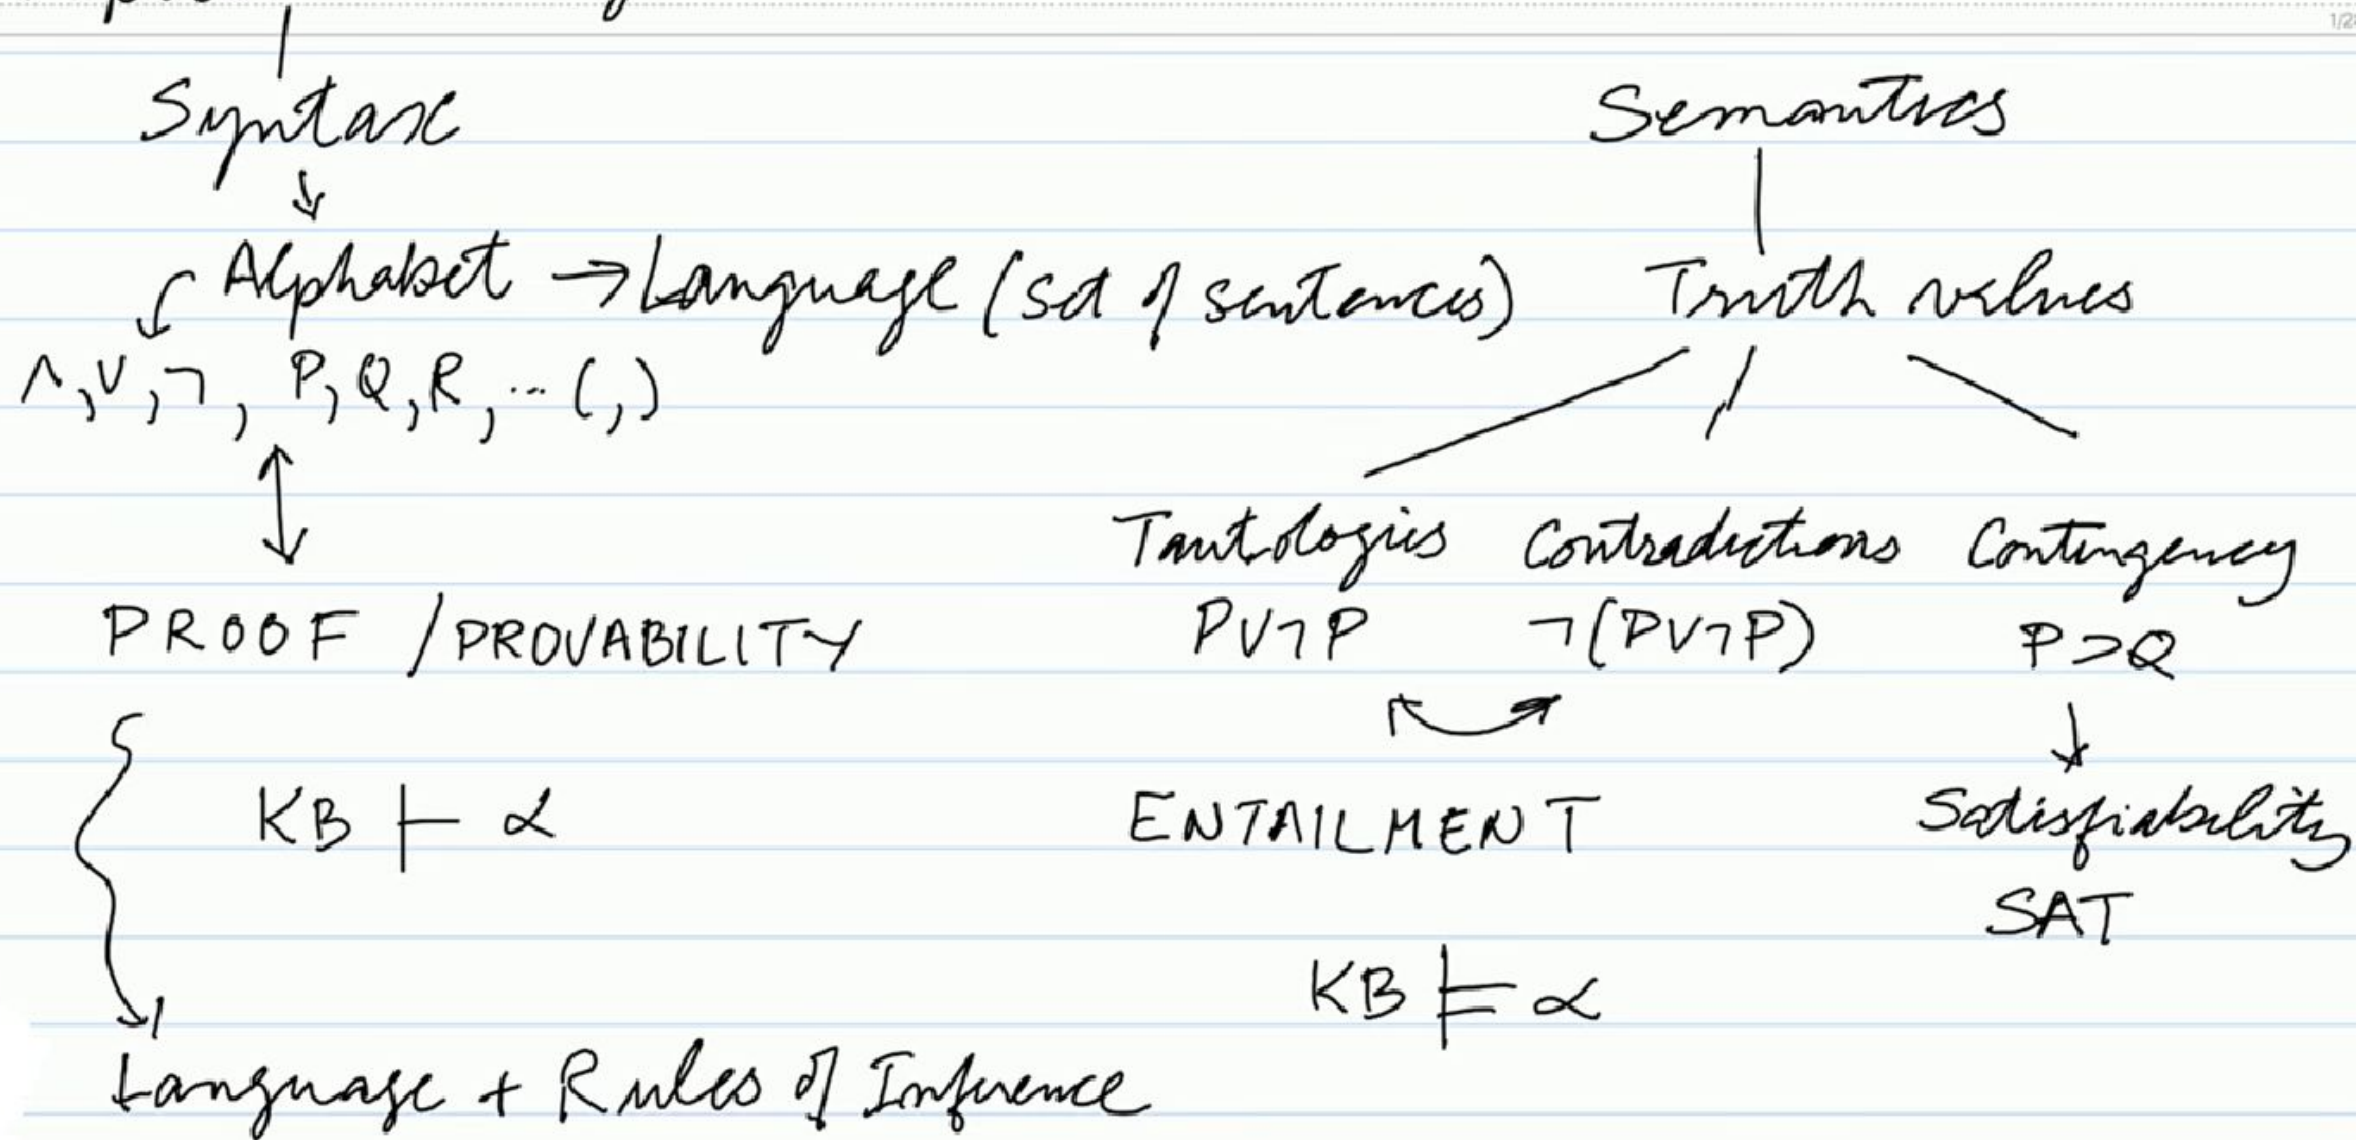 Syntax
Semantics
Alphabet → Language (set of sentences)
Truth values
∧, ∨, ¬, P, Q, R, ... (, )
Tautologies Contradictions Contingency
PROOF / PROVABILITY
P∨¬P ¬(P∨¬P) P⊃Q
KB ⊢ α
ENTAILMENT
Satisfiability
SAT
KB ⊨ α
Language + Rules of Inference